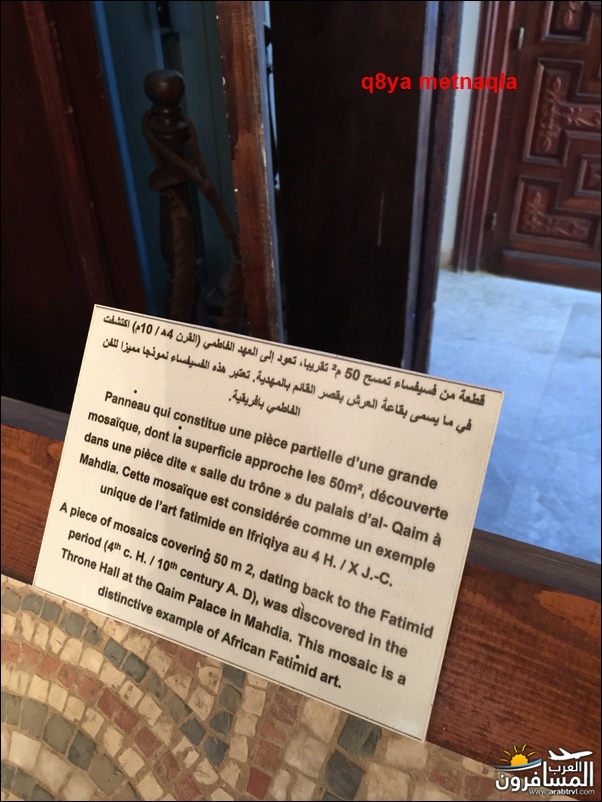 q8ya metnaqla
قطعة من فسيفساء تمسح 50 م² تقريبا، تعود إلى العهد الفاطمي (القرن 4هـ / 10م) اكتشفت
في ما يسمى بقاعة العرش بقصر القائم بالمهدية. تعتبر هذه الفسيفساء نموذجا مميزا للفن
الفاطمي بافريقية.
Panneau qui constitue une pièce partielle d'une grande
mosaïque, dont la superficie approche les 50m², découverte
dans une pièce dite « salle du trône » du palais d'al- Qaim à
Mahdia. Cette mosaïque est considérée comme un exemple
unique de l'art fatimide en Ifriqiya au 4 H. / X J.-C.
A piece of mosaics covering 50 m 2, dating back to the Fatimid
period (4th c. H. / 10th century A. D), was discovered in the
Throne Hall at the Qaim Palace in Mahdia. This mosaic is a
distinctive example of African Fatimid art.
العرب
المسافرون
www.arabtrvl.com